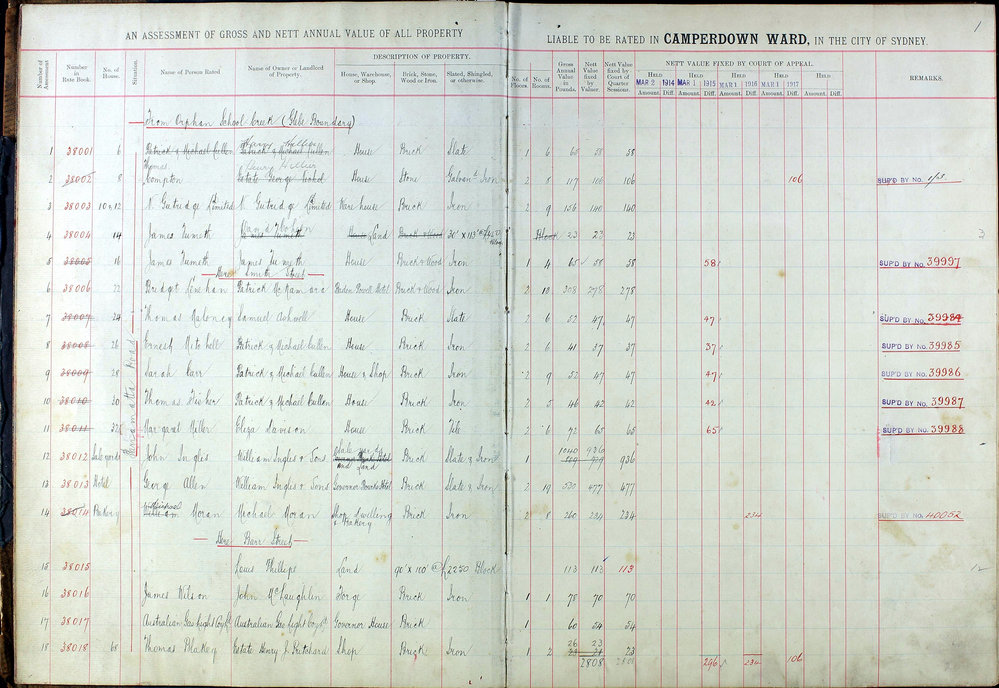 1
AN ASSESSMENT OF GROSS AND NETT ANNUAL VALUE OF ALL PROPERTY LIABLE TO BE RATED IN CAMPERDOWN WARD, IN THE CITY OF SYDNEY.
Number of Assessment Number in Rate Book. No. of House. Situation. Name of Person Rated Name of Owner or Landlord of Property. DESCRIPTION OF PROPERTY. House, Warehouse, or Shop. Brick, Stone, Wood or Iron. Slated, Shingled, or otherwise. No. of Floors. No. of Rooms. Gross Annual Value in Pounds. Nett Value fixed by Valuer. Nett Value fixed by Court of Quarter Sessions. NETT VALUE FIXED BY COURT OF APPEAL. REMARKS.
HELD MAR 2 1914 HELD MAR 1 1915 HELD MAR 1 1916 HELD MAR 1 1917 HELD
Amount. Diff. Amount. Diff. Amount. Diff. Amount. Diff. Amount. Diff.
Parramatta Road
From Orphan School Creek (Glebe Boundary)
1 38001 6 Patrick & Michael Cullen Patrick & Michael Cullen House Brick Slate 1 6 65 58 58
Thomas
2 38002 8 Compton Estate George House Stone Galvand Iron 2 8 117 106 106 106 SUP'D BY No.
3 38003 10 & 12 N. Gutridge Limited N. Gutridge Limited Ware house Brick Iron 2 9 156 140 140
4 38004 14 James Tumeth James Tumeth House Land Brick & Wood 30' x 113' @ £450 Block 23 23 23 3
5 38005 16 James Tumeth James Tumeth House Brick & Wood Iron 1 4 65 58 58 58 SUP'D BY No. 39997
Here Smith Street
6 38006 22 Bridget Linehan Patrick McNamara Baden Powell Hotel Brick & Wood Iron 2 10 308 278 278
7 38007 24 Thomas Maloney Samuel Ashwell House Brick Slate 2 6 52 47 47 47 SUP'D BY No. 39984
8 38008 26 Ernest Mitchell Patrick & Michael Cullen House Brick Iron 2 6 41 37 37 37 SUP'D BY No. 39985
9 38009 28 Sarah Carr Patrick & Michael Cullen House & Shop Brick Iron 2 9 52 47 47 47 SUP'D BY No. 39986
10 38010 30 Thomas Fisher Patrick & Michael Cullen House Brick Iron 2 5 46 42 42 42 SUP'D BY No. 39987
11 38011 32 Margaret Miller Eliza Davison House Brick Tile 2 6 72 65 65 65 SUP'D BY No. 39988
1040 936
12 38012 Sale yards John Inglis William Inglis & Sons and Land Brick Slate & Iron 1 936
13 38013 Hotel George Allen William Inglis & Sons Governor Bourke Hotel Brick Slate & Iron 2 19 530 477 477
14 38014 Bakery William Moran Michael Moran Shop Dwelling & Bakery Brick Iron 2 8 260 234 234 234 SUP'D BY No. 40052
Here Barr Street
15 38015 Louis Phillips Land 90' x 100' @ £2250 Block 113 113 113 12
16 38016 James Wilson John McLaughlin Forge Brick Iron 1 1 78 70 70
17 38017 Australian Gas Light Coy Ld Australian Gas Light Coy Ld Governor House Brick 1 60 54 54
26 23
18 38018 68 Thomas Blakey Estate Henry J. Pritchard Shop Brick Iron 1 2 23 21 23
2808 2808 296 234 106